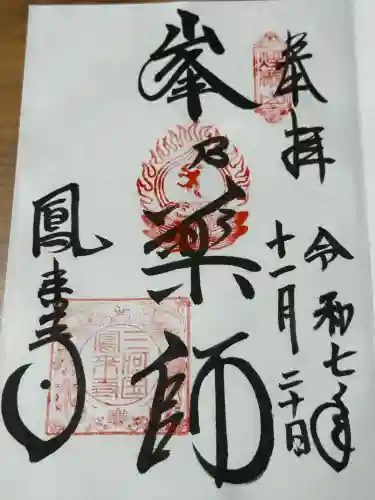 奉拝
令和七年
十一月二十日
峯乃薬師
鳳来寺
三河国
鳳来寺